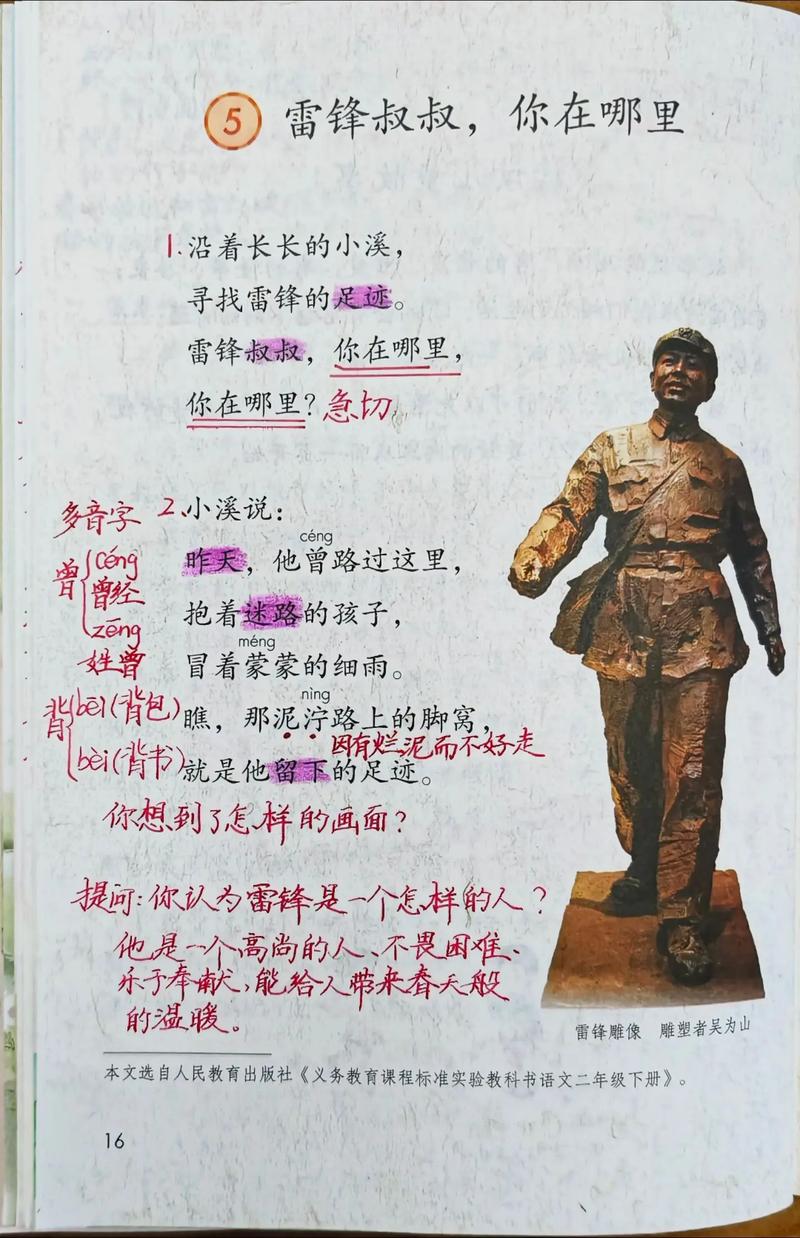 5 雷锋叔叔，你在哪里
1.沿着长长的小溪，
寻找雷锋的足迹。
雷锋叔叔，你在哪里，
你在哪里？急切
多音字
曾
céng
曾经
zēng
姓曾
2.小溪说：
céng
昨天，他曾路过这里，
抱着迷路的孩子，
méng
冒着蒙蒙的细雨。
nìng
瞧，那泥泞路上的脚窝，
因有烂泥而不好走
就是他留下的足迹。
背
bēi(背包)
bèi(背书)
你想到了怎样的画面？
提问：你认为雷锋是一个怎样的人？
他是一个高尚的人、不畏困难、
乐于奉献，能给人带来春天般
的温暖。
雷锋雕像 雕塑者吴为山
本文选自人民教育出版社《义务教育课程标准实验教科书语文二年级下册》。
16